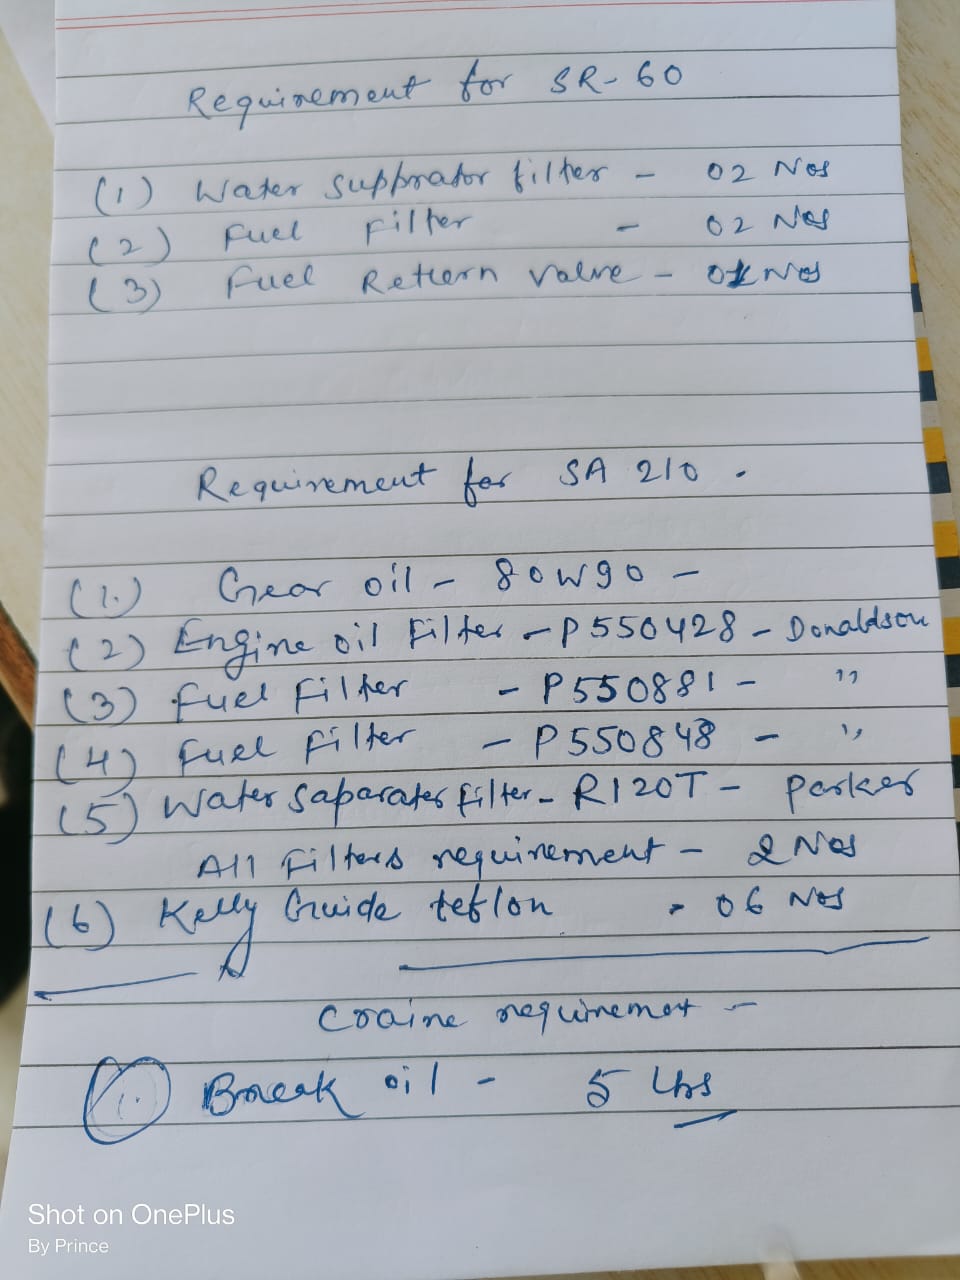 Requirement for SR-60
(1) Water Suppration filter - 02 Nos
(2) Fuel Filter - 02 Nos
(3) Fuel Return Valve - 01 Nos
Requirement for SA 210.
(1.) Gear oil - 80W90 -
(2) Engine oil Filter - P550428 - Donaldson
(3) Fuel Filter - P550881 - "
(4) Fuel Filter - P550848 - "
(5) Water Saparater Filter - R120T - Parker
All Filters requirement - 2 Nos
(6) Kelly Guide teflon - 06 Nos
Craine requiremet -
(1.) Break oil - 5 Ltrs
Shot on OnePlus
By Prince